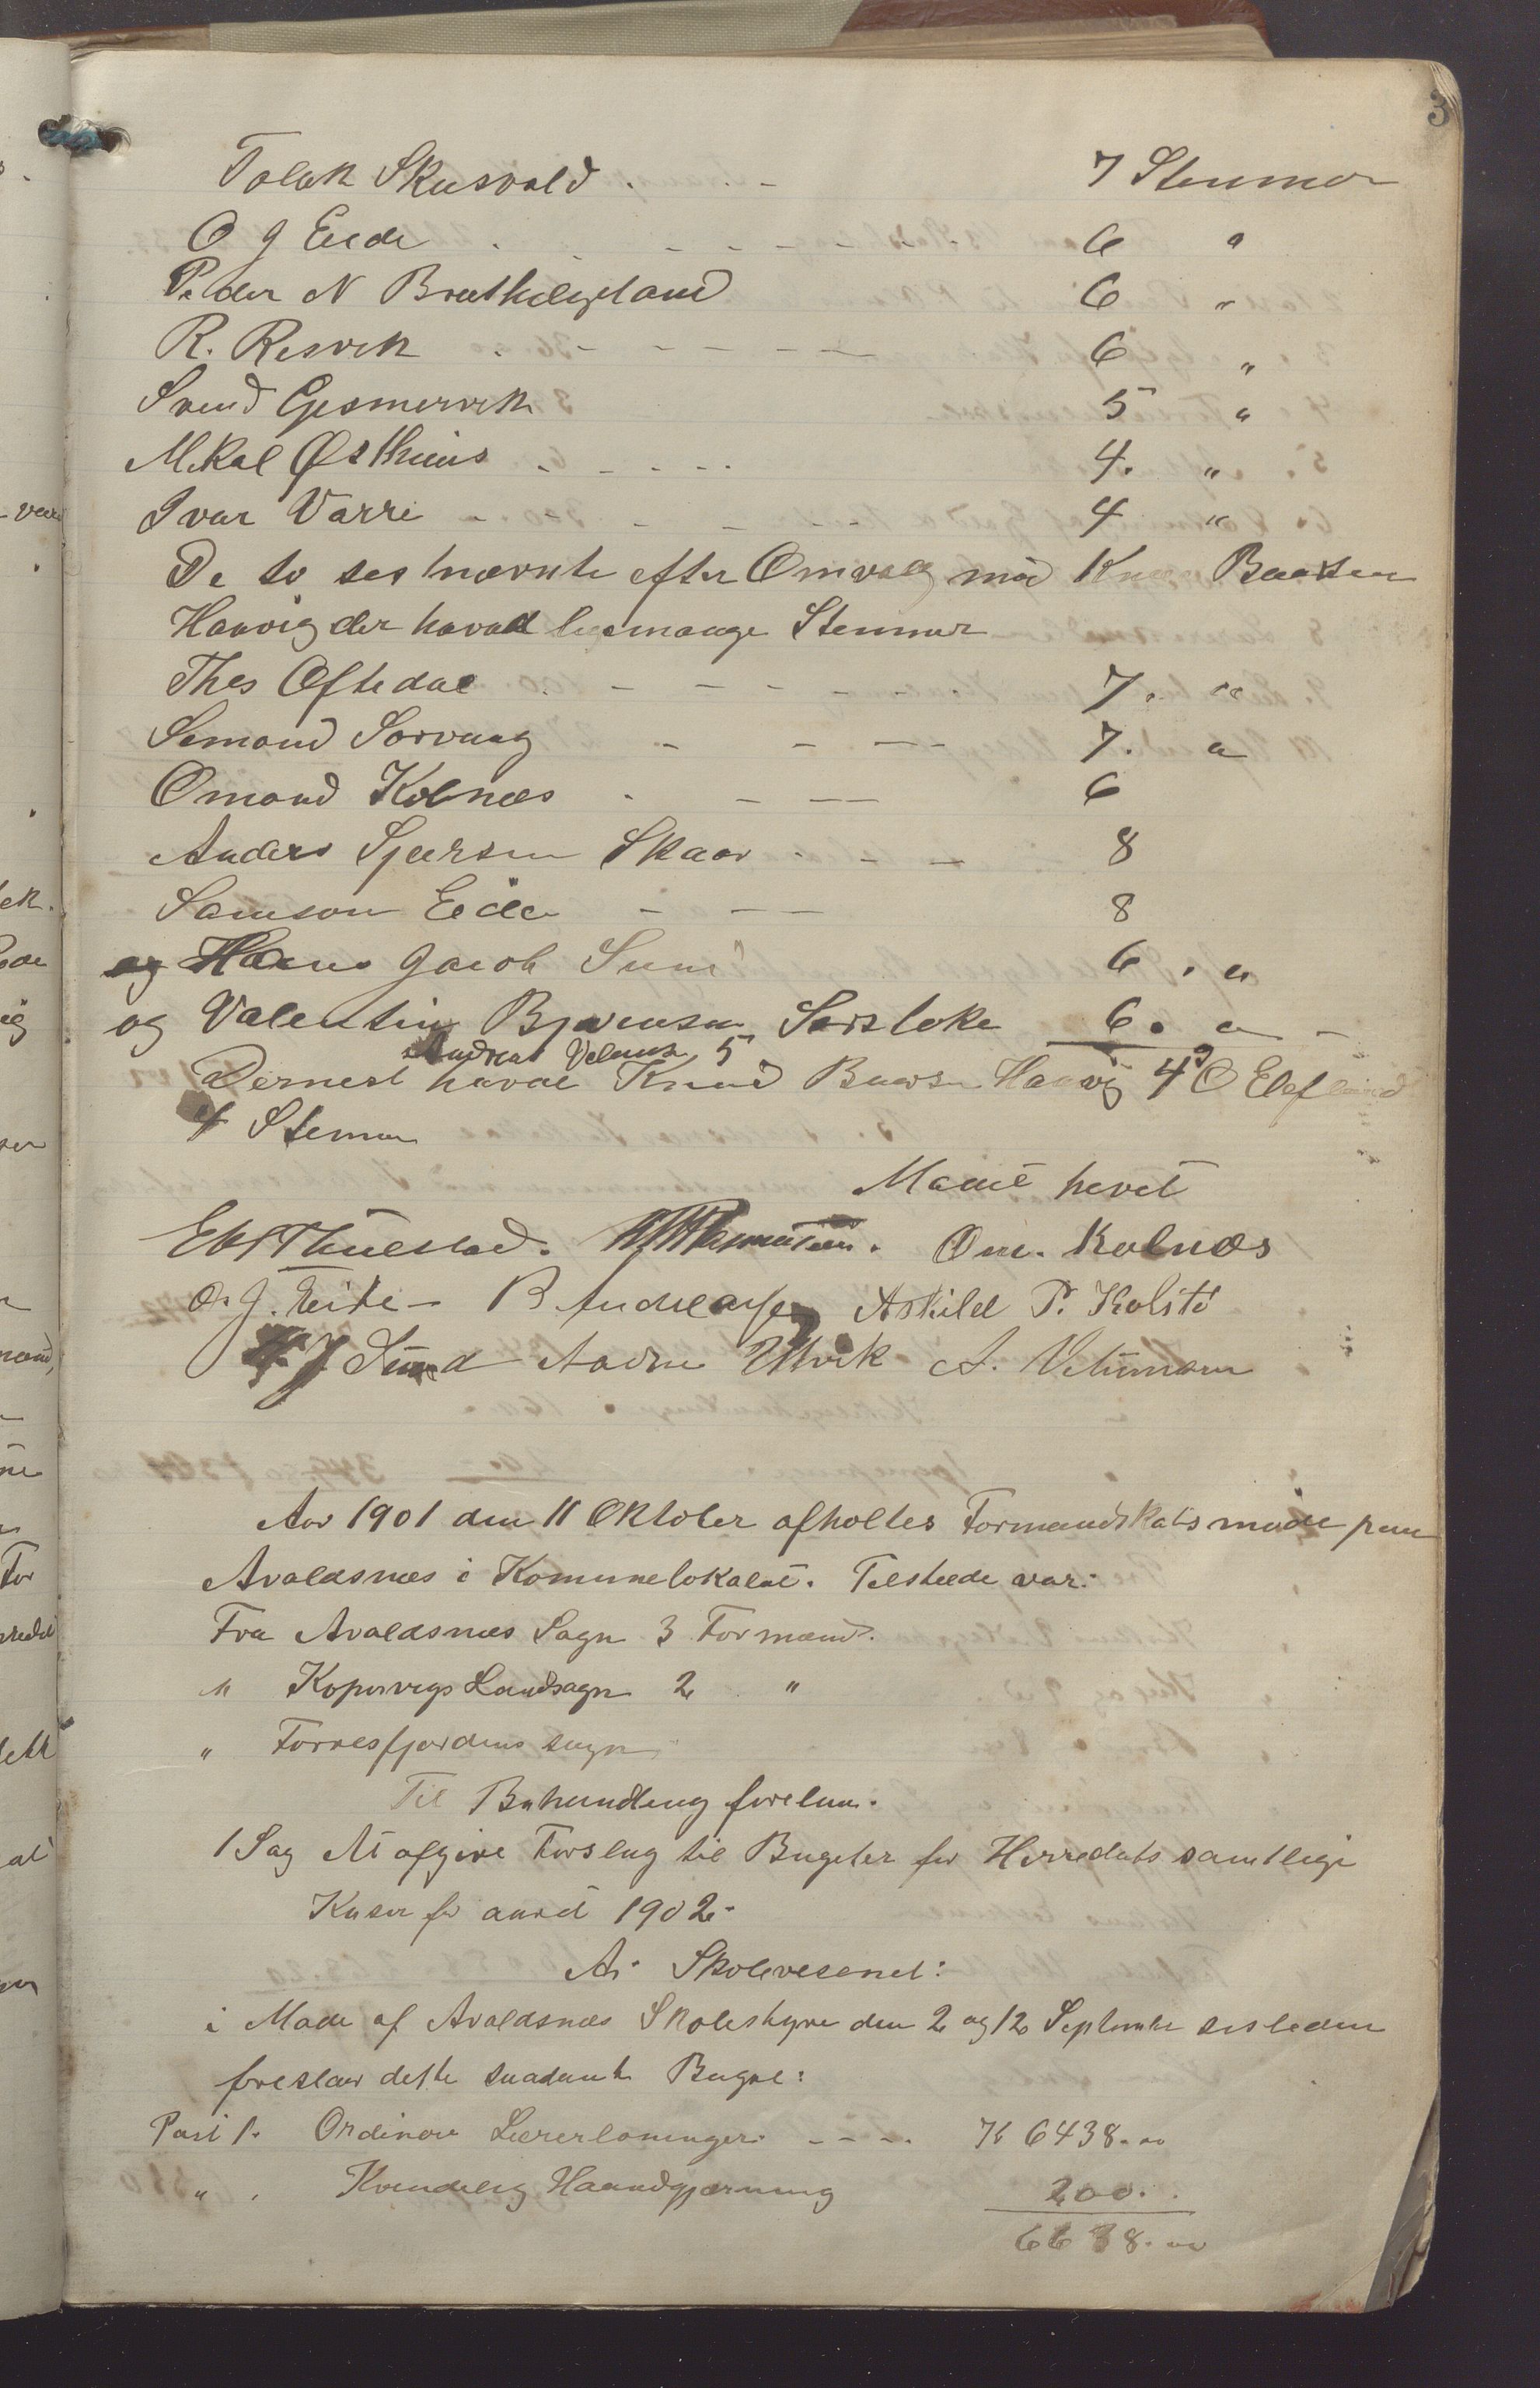 3
Tolak Skusvold . . - 7 Stemmer
O J Eide . . - - - - - 6 "
Peder N Bratthelgeland 6 "
R. Resvik . - - - - - 6 "
Svend Gjesmervik 5 "
Mikal Østhuus . - - . . 4. "
Ivar Varre - - - - - 4 "
De to sestnævnte efter Omvalg med Knud Baarsen
Haavig der havde ligemange Stemmer
Ths Oftedal . - - - - - - 7. "
Simond Sørvaag - - - - - 7. "
Omond Kolnæs . - - - 6
Anders Sjursen Skaar - - - 8
Samson Eide - - - 8
og Hans Jacob Sund 6 . "
og Valentin Bjørnsen Sørstokke 6. " -
Andreas Velums. 5
Dernest havde Knud Baars. Haavig 4 O O Eikeland
4 Stemmer
Mødet hævet
E B Thuestad. Rasmussen. Om. Kolnæs
O. J. Eide - B Andreassen Askild P. Kolstø
H J Sund Aadne Utvik A. Velumsen
Aar 1901 den 11 Oktober afholtes Formandskabsmøde paa
Avaldsnæs i Komunelokalet. Tilstede var:
Fra Avaldsnæs Sogn 3 Formænd.
" Kopervigs Landsogn 2 "
" Torvesfjordens sogn
Til Behandling forelaa.
1 Sag At afgive Forslag til Bugeter for Herredets samtlige
Kaser for aaret 1902.
A. Skolevesenet:
i Møde af Avaldsnæs Skolestyre den 2 og 12 September sisleden
foreslaar dette saadant Buget:
Post 1. Ordinære Lærerlønninger. - - - . Kr 6438.00
" . Kvindelig Haandgjerning 200. .
6638.00